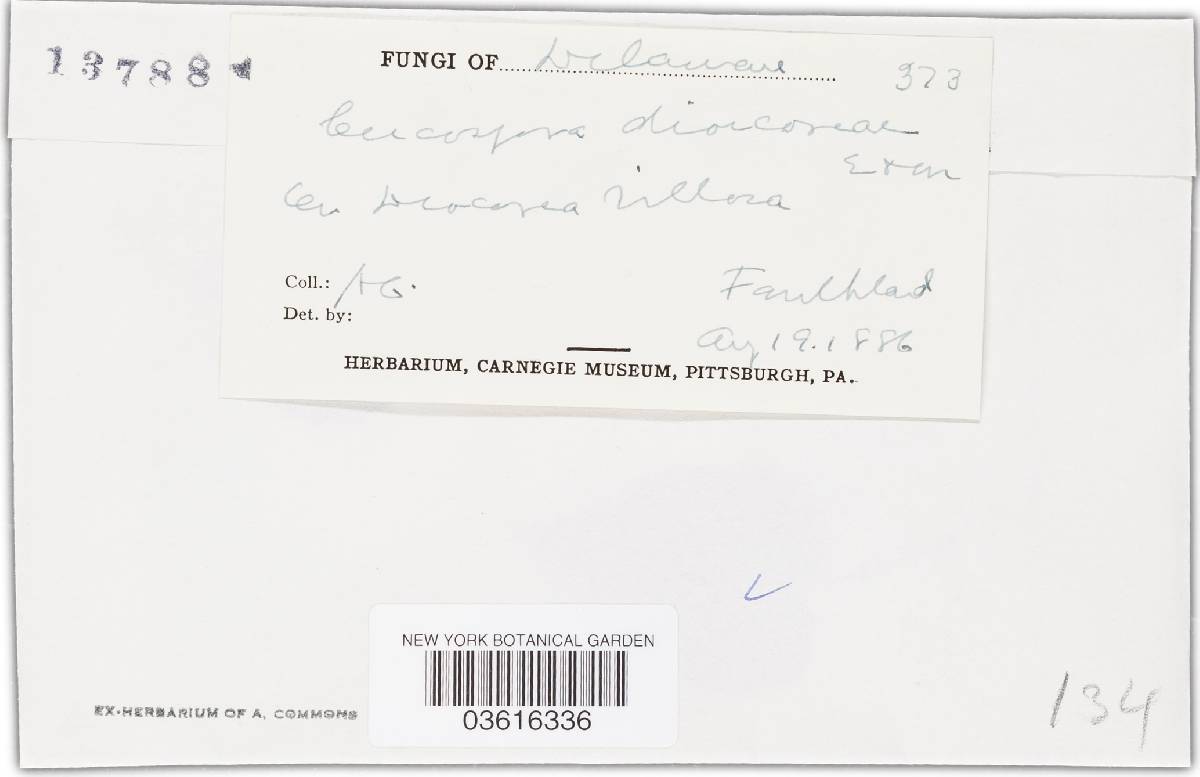 13788
FUNGI OF Delaware 373
Cercospora dioscoreae
E & M
On Dioscorea villosa
Coll.:
Faulkland
Det. by:
Aug 19. 1886
HERBARIUM, CARNEGIE MUSEUM, PITTSBURGH, PA.
NEW YORK BOTANICAL GARDEN
03616336
EX-HERBARIUM OF A. COMMONS
134